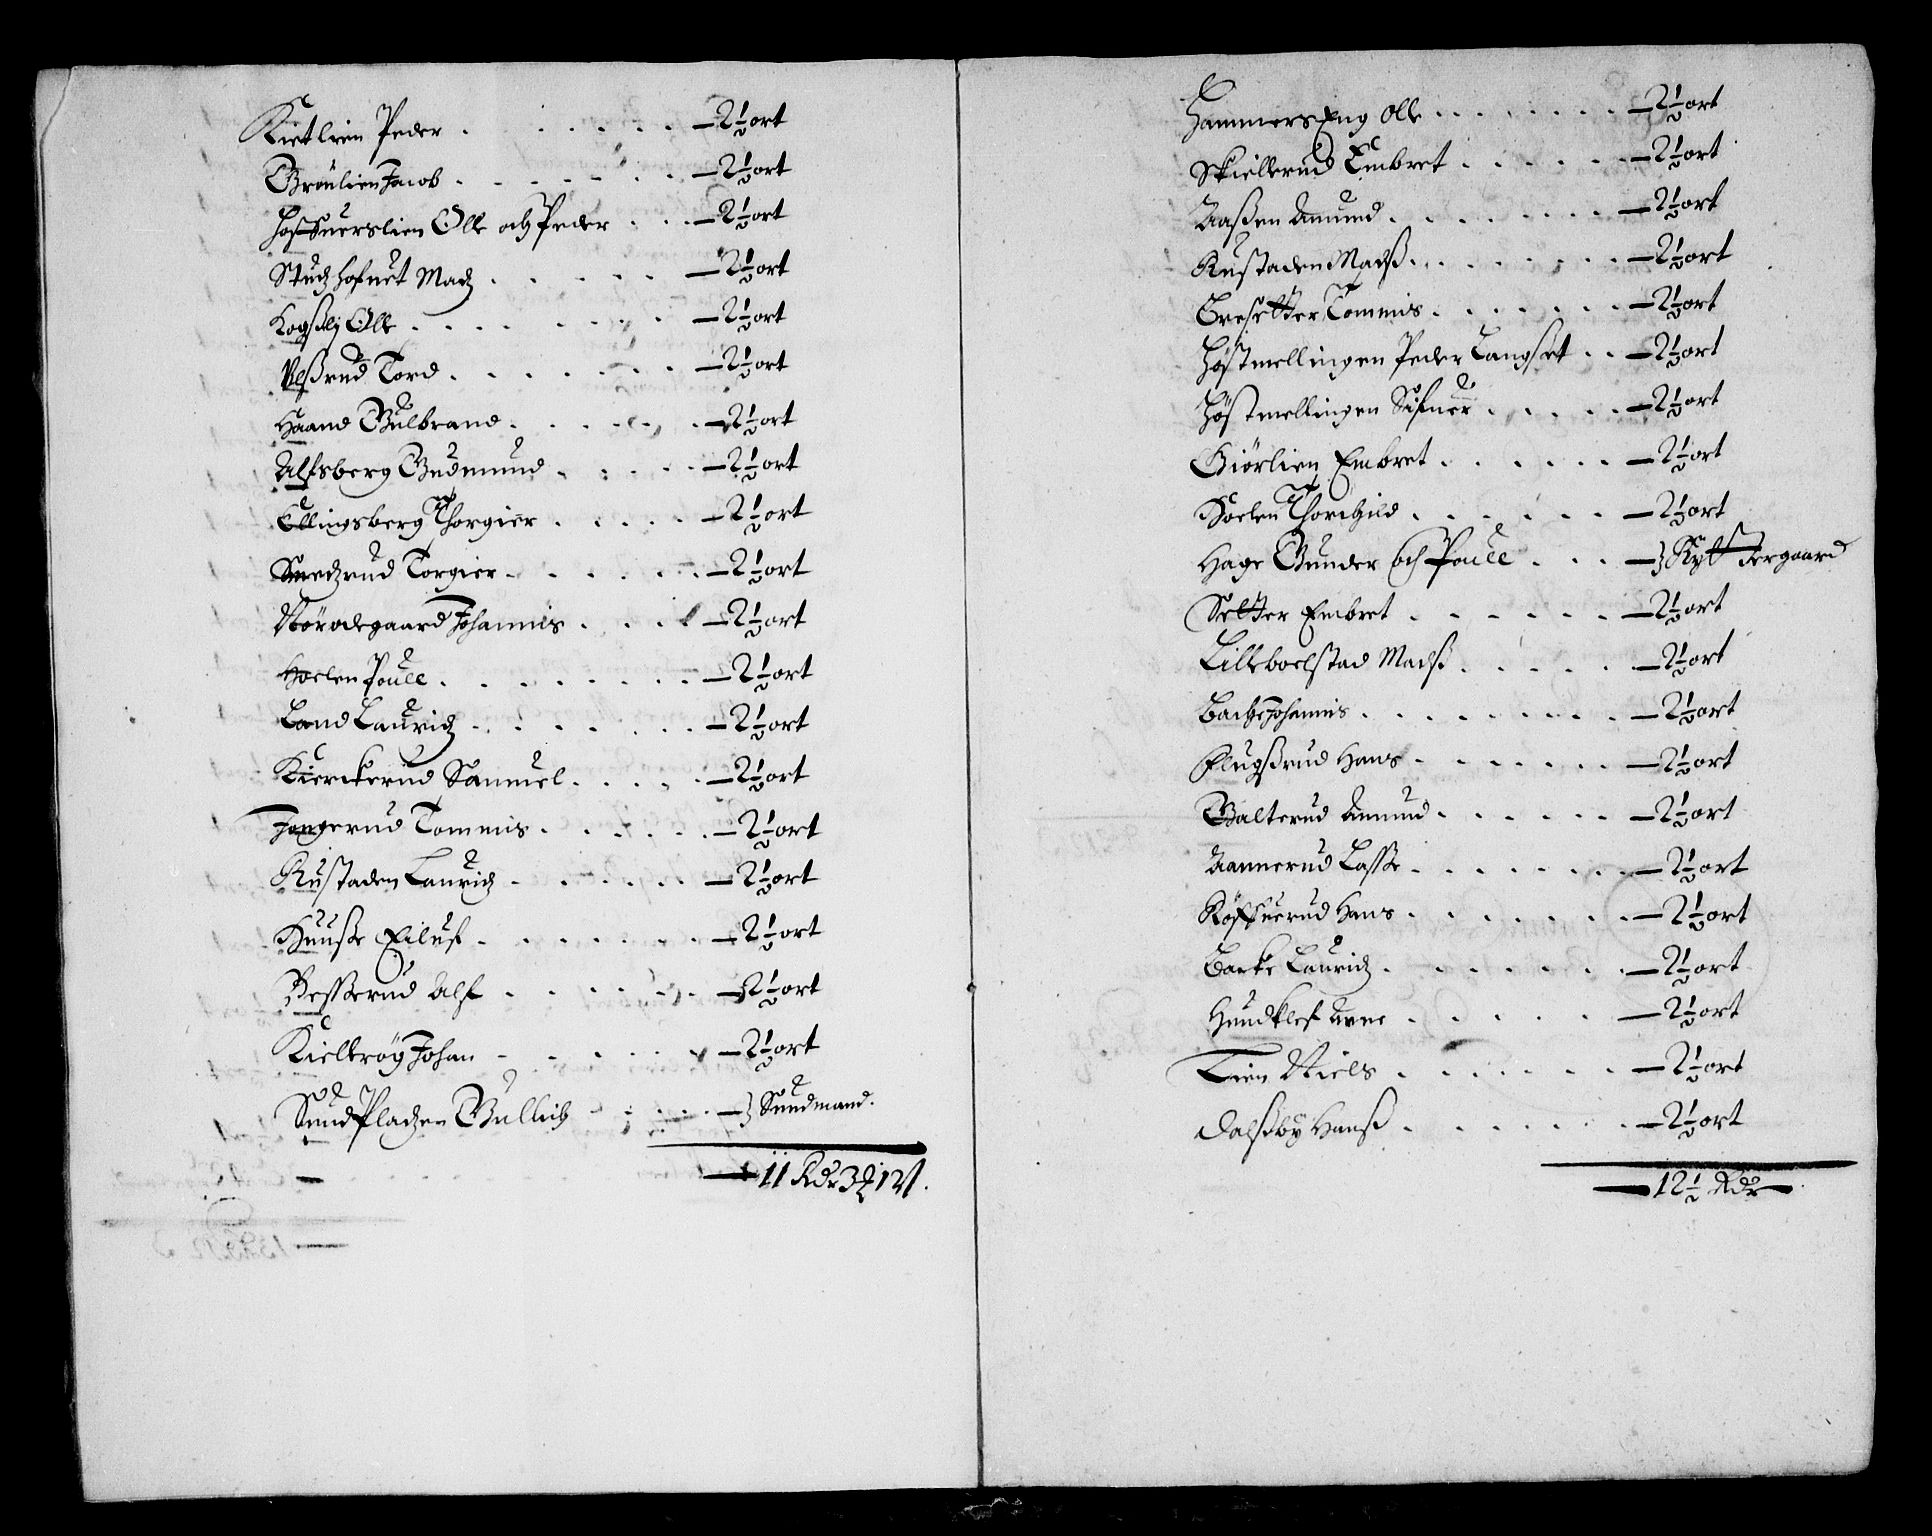 Kietlien Peder . . . . . . — 2½ ort
Gröulien Jacob . . . . . . — 2½ ort
Hoffuerslien Olle och Peder . . . — 2½ ort
Stutzhofuet Madz . . . . . — 2½ ort
Kogßlj Olle . . . . . . — 2½ ort
Vlßrud Tord . . . . . . — 2½ ort
Haand Gulbrand . . . . . — 2½ ort
Alfsberg Gudmund . . . . — 2½ ort
Ellingsberg Thorgier . . . . — 2½ ort
Smedzrud Torgier . . . . . — 2½ ort
Nörvdegaard Johannis . . . . — 2½ ort
Hoelen Pouel . . . . . . . — 2½ ort
Land Lauridz . . . . . . — 2½ ort
Kierckerud Samuel . . . . — 2½ ort
Jongerud Tommis . . . . . — 2½ ort
Rustaden Lauridz . . . . . — 2½ ort
Huuße Eiluf . . . . . . — 2½ ort
Besserud Alf . . . . . . — 2½ ort
Kieltrög Johan . . . . . — 2½ ort
Sund Pladzen Gullich . . . . —} Sundmand.
— 11 Rdr 3 ꝶ 12 ß.
HammersEng Olle . . . . . . — 2½ ort
Skiellerud Embret . . . . . — 2½ ort
Aaßen Amund . . . . . . — 2½ ort
Rustaden Madß . . . . . . — 2½ ort
Bresetter Tommis . . . . . — 2½ ort
Höstmellingen Peder Langset . . — 2½ ort
Höstmellingen Sifuer . . . . — 2½ ort
Giörlien Embret . . . . . — 2½ ort
Hoelen Thorchild . . . . . — 2½ ort
Hage Gunder och Pouel . . . —} Ryttergaard
Setter Embret . . . . . . — 2½ ort
Lilleboelstad Madß . . . . . — 2½ ort
Bache Johannis . . . . . . . — 2½ ort
Flugßrud Hans . . . . . . — 2½ ort
Galterud Amund . . . . . . — 2½ ort
Aannerud Lasse . . . . . . — 2½ ort
Röffuerud Hans . . . . . . — 2½ ort
Barke Lauridz . . . . . . — 2½ ort
Hundklef Arne . . . . . — 2½ ort
Lien Niels . . . . . . — 2½ ort
Dalßby Hanß . . . . . . — 2½ ort
— 12½ Rdr —